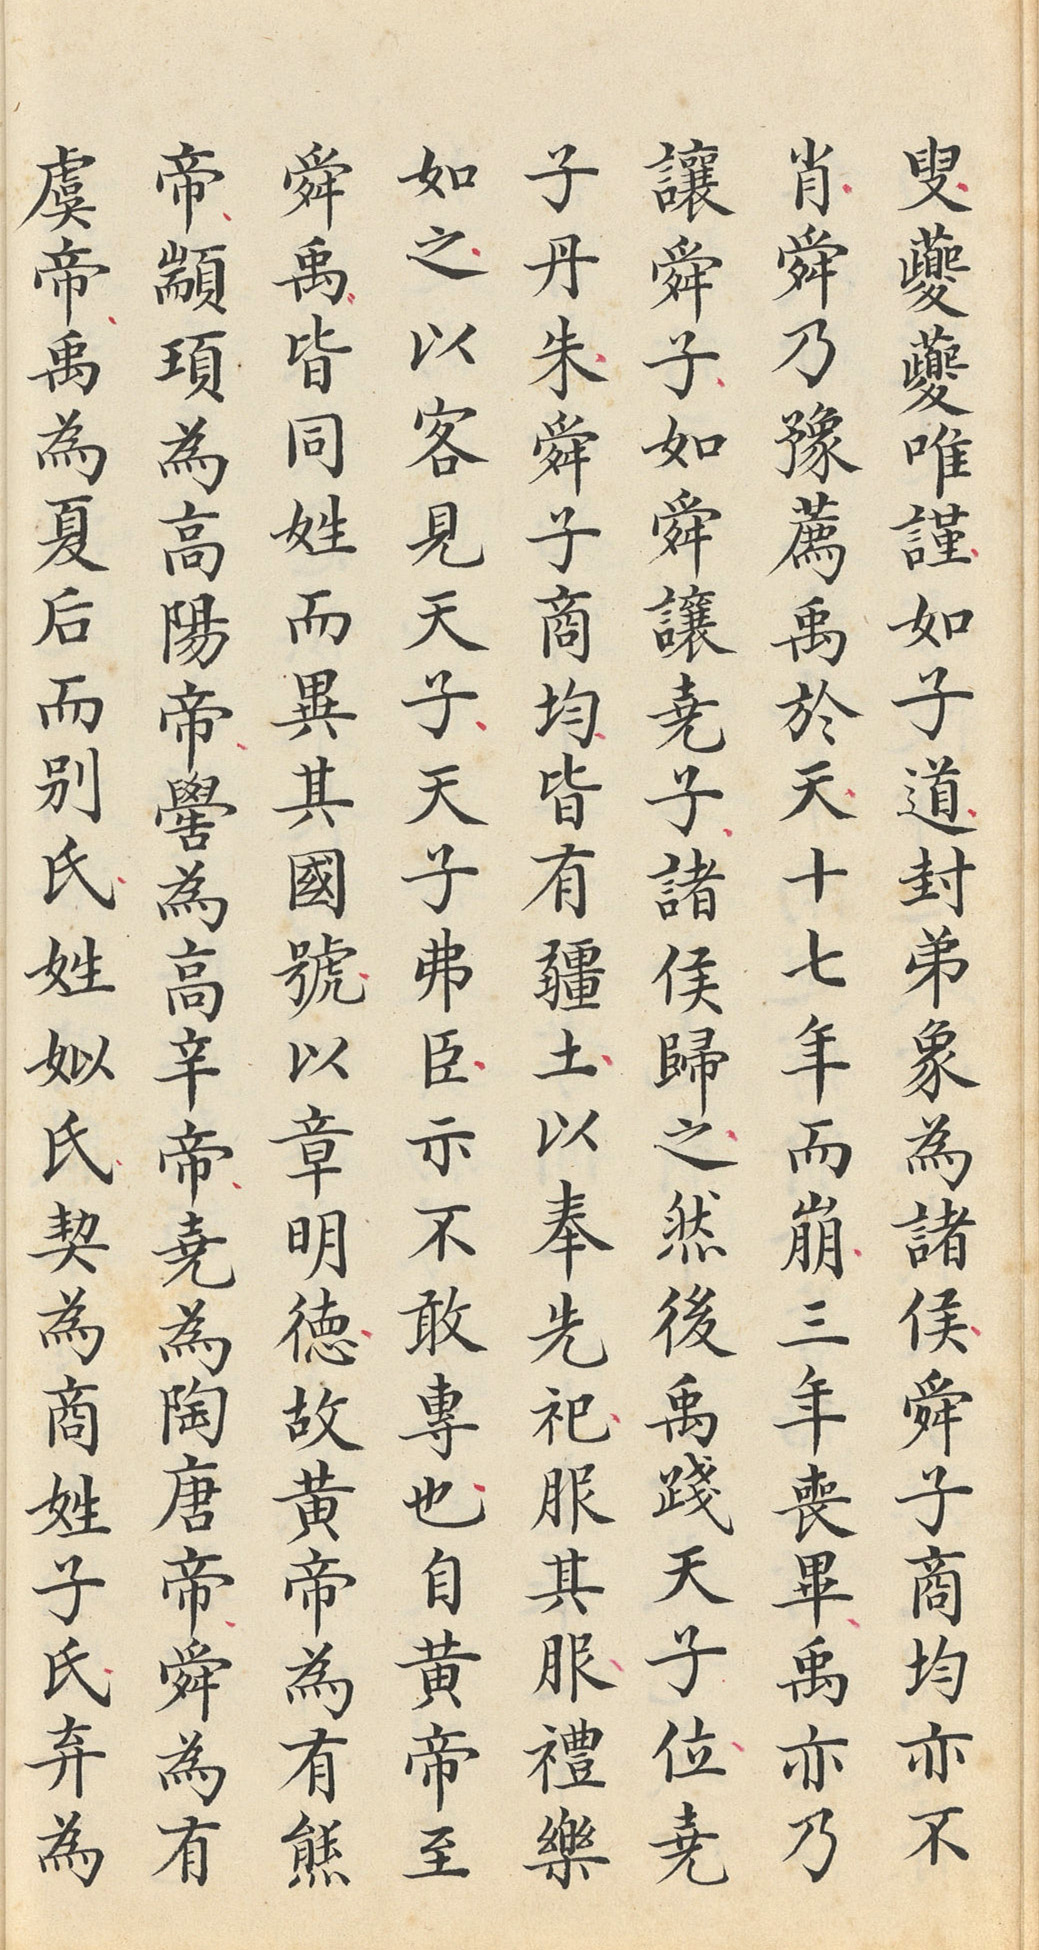 叟夔夔唯謹如子道封弟象為諸侯舜子商均亦不
肖舜乃豫薦禹於天十七年而崩三年喪畢禹亦乃
讓舜子如舜讓堯子諸侯歸之然後禹踐天子位堯
子丹朱舜子商均皆有疆土以奉先祀服其服禮樂
如之以客見天子天子弗臣示不敢專也自黃帝至
舜禹皆同姓而異其國號以章明德故黃帝為有熊
帝顓頊為高陽帝嚳為高辛帝堯為陶唐帝舜為有
虞帝禹為夏后而別氏姓姒氏契為商姓子氏弃為